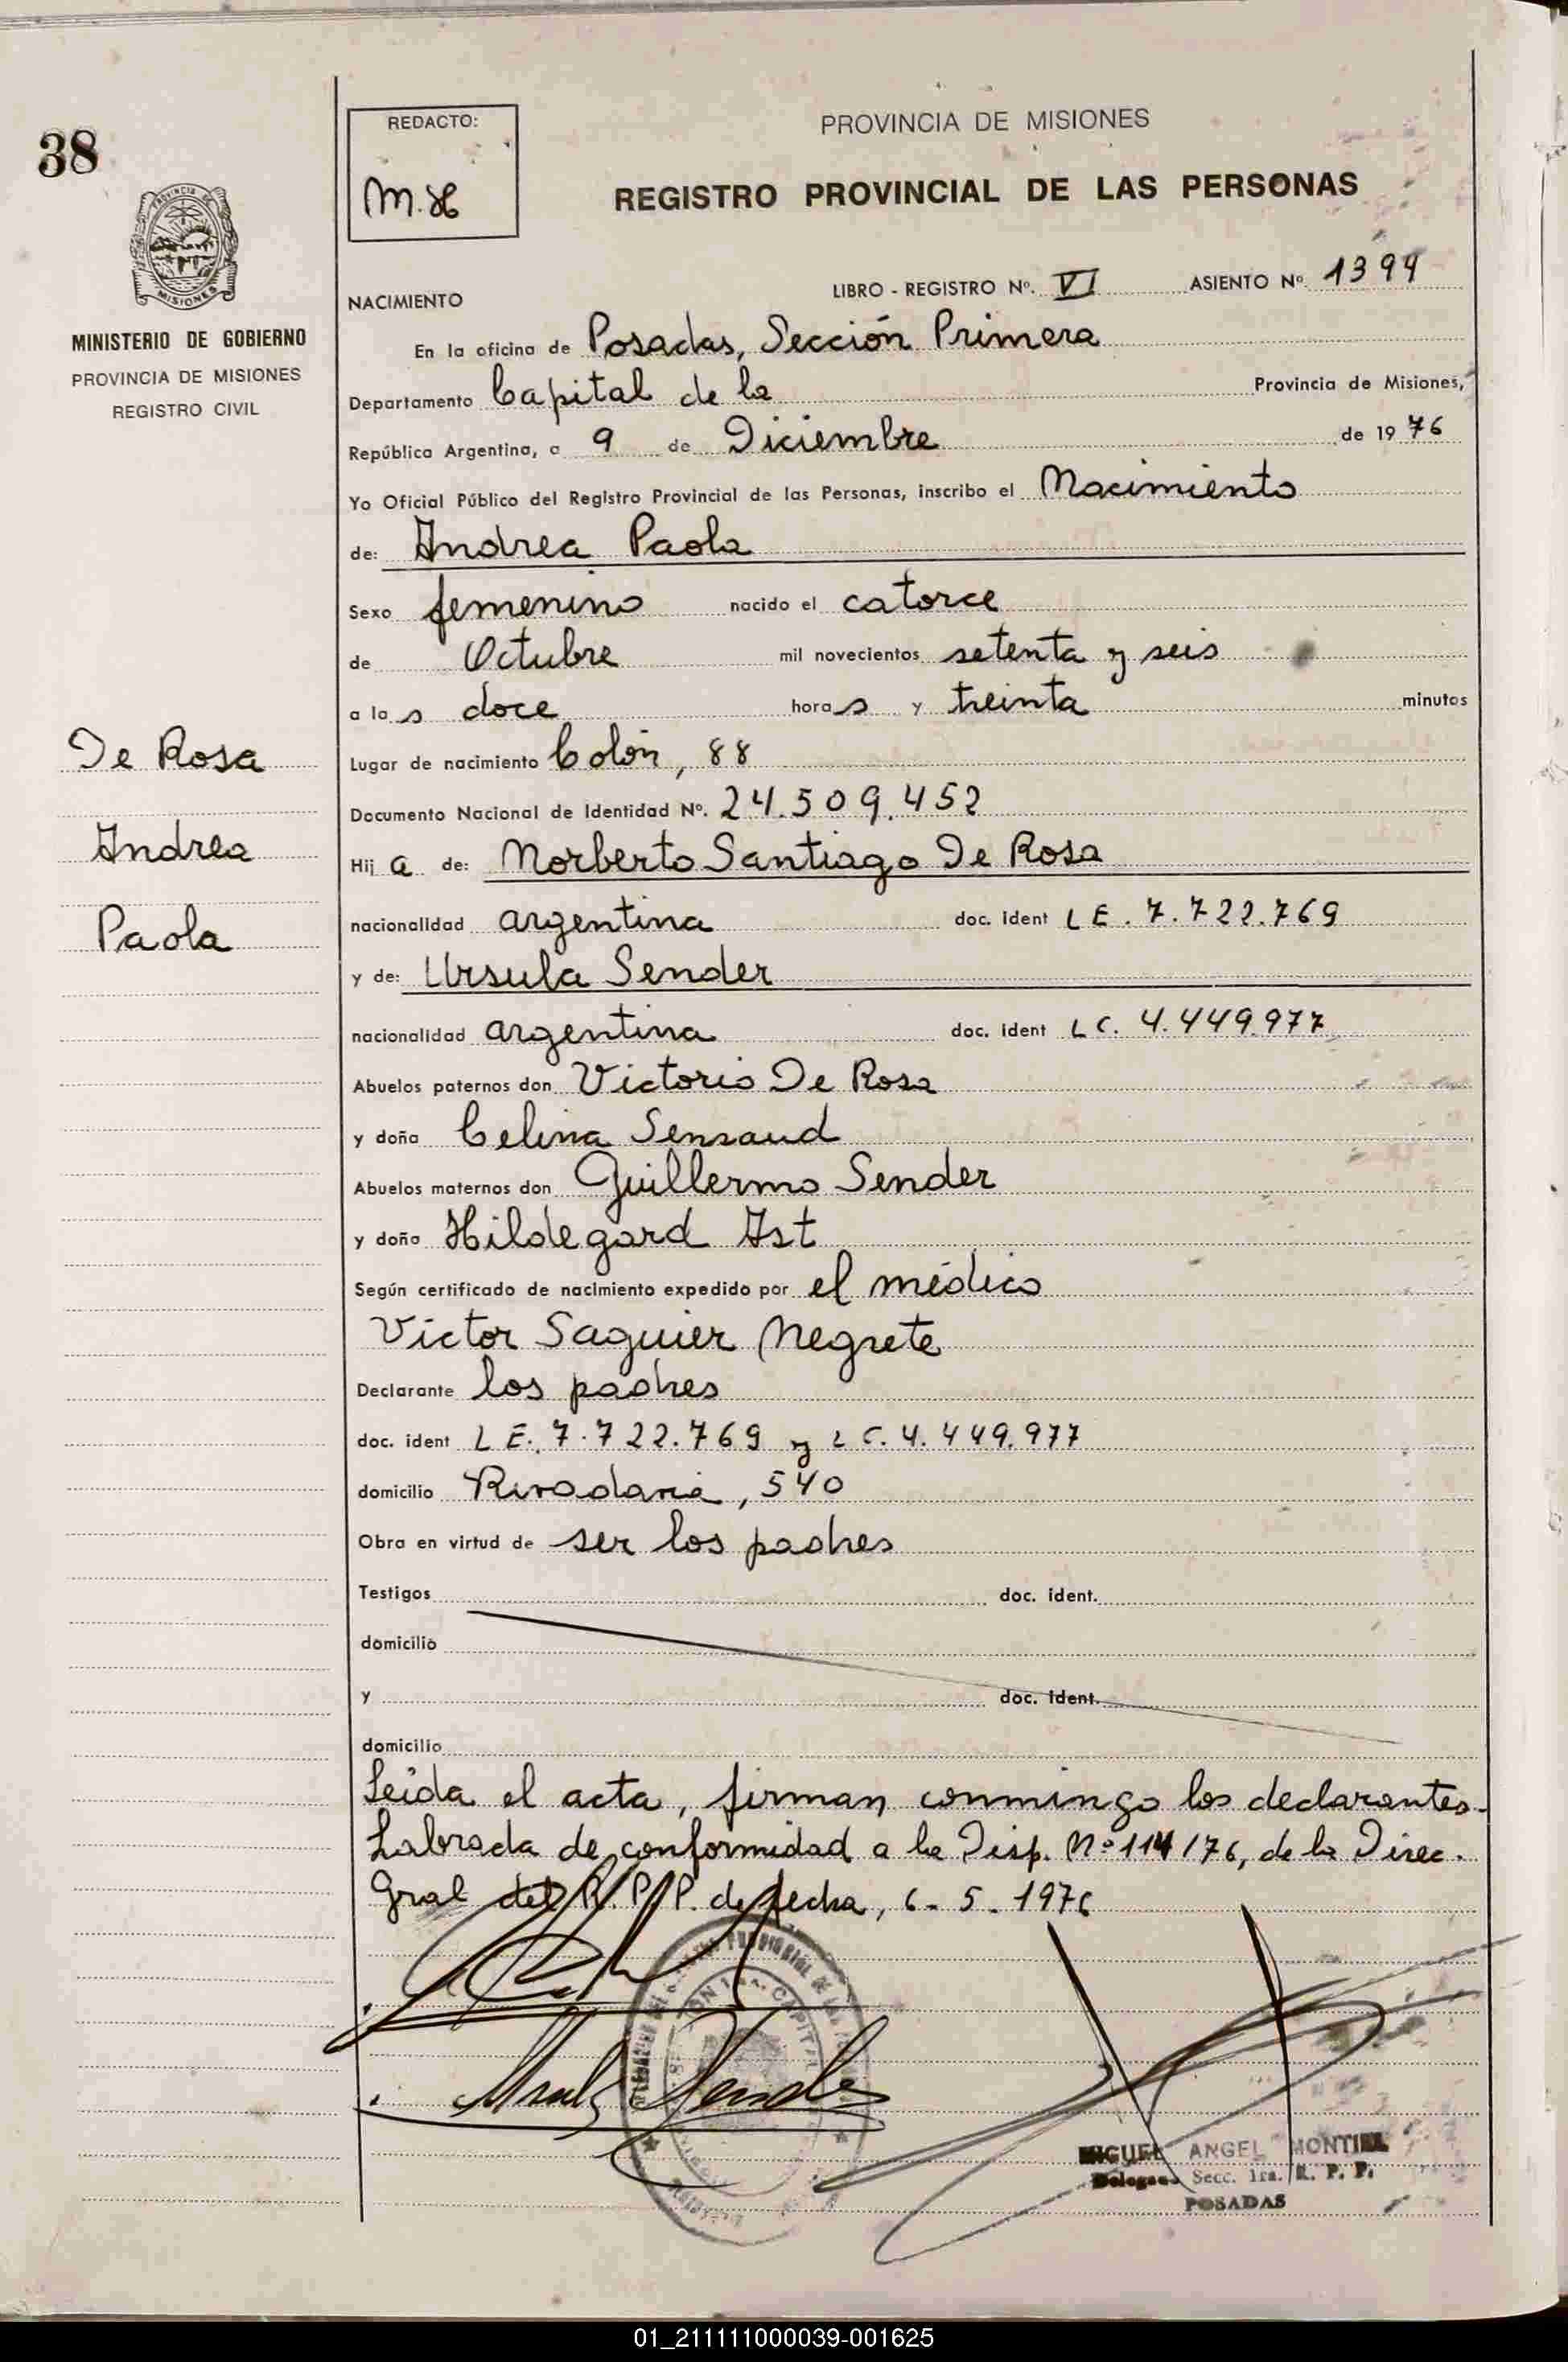 38
PROVINCIA DE
MISIONES
MINISTERIO DE GOBIERNO
PROVINCIA DE MISIONES
REGISTRO CIVIL
De Rosa
Andrea
Paola
REDACTO:
PROVINCIA DE MISIONES
REGISTRO PROVINCIAL DE LAS PERSONAS
NACIMIENTO LIBRO - REGISTRO Nº. VI ASIENTO Nº 1394
En la oficina de Posadas, Sección Primera
Departamento Capital de la Provincia de Misiones,
República Argentina, a 9 de Diciembre de 1976
Yo Oficial Público del Registro Provincial de las Personas, inscribo el Nacimiento
de: Andrea Paola
Sexo femenino nacido el catorce
de Octubre mil novecientos setenta y seis
a las doce horas y treinta minutos
Lugar de nacimiento Colón, 88
Documento Nacional de Identidad Nº. 24.509.452
Hija de: Norberto Santiago De Rosa
nacionalidad argentina doc. ident LE. 7.722.769
y de: Ursula Sender
nacionalidad argentina doc. ident LC. 4.449.977
Abuelos paternos don Victorio De Rosa
y doña Celina Sensaud
Abuelos maternos don Guillermo Sender
y doña Hildegard Ast
Según certificado de nacimiento expedido por el médico
Victor Saguier Negrete
Declarante los padres
doc. ident LE. 7.722.769 y LC. 4.449.977
domicilio Rivadavia, 540
Obra en virtud de ser los padres
Testigos doc. ident.
domicilio
y doc. ident.
domicilio
Leida el acta, firman conmingo los declarantes.
Labrada de conformidad a la Disp. Nº 114/76, de la Direc.
Gral del R.P.P. de fecha, 6-5-1976
MIGUEL ANGEL MONTIEL
Delegado Secc. 1ra. R. P. P.
POSADAS
01_211111000039-001625